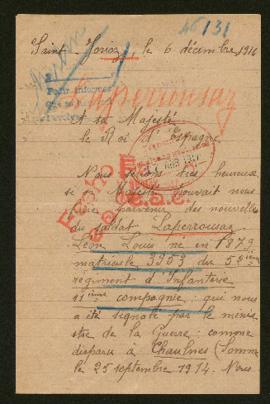 46131
Saint-Jorioz, le 6 décembre 1914
Laperrousaz
A sa Majesté
le Roi d'Espagne
Nous serions très heureux
si Majesté pouvait nous
faire parvenir des nouvelles
du soldat Laperrousaz
Léon Louis né en 1879
matricule 3353 du 5
régiment d'Infanterie
11ième compagnie; qui nous
a été signalé par le minis
tre de la Guerre: comme
disparu à Chaulnes (Somme)
le 25 septembre 1914. Nous